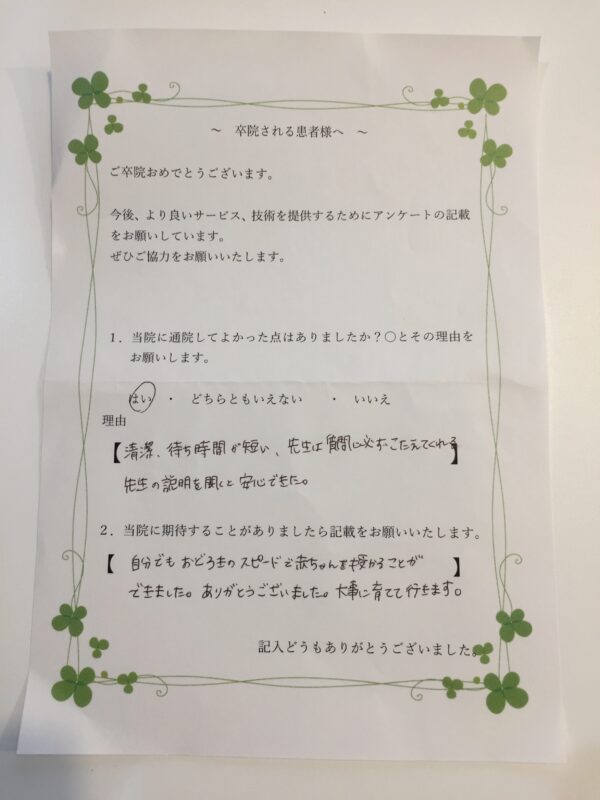 ～　卒院される患者様へ　～
ご卒院おめでとうございます。
今後、より良いサービス、技術を提供するためにアンケートの記載
をお願いしています。
ぜひご協力をお願いいたします。
１．当院に通院してよかった点はありましたか？〇とその理由を
お願いします。
はい　・　どちらともいえない　　・　いいえ
理由
【清潔、待ち時間が短い、先生は質問に必ずこたえてくれる】
先生の説明を聞くと安心できた。
２．当院に期待することがありましたら記載をお願いいたします。
【自分でもおどろきのスピードで赤ちゃんを授かることが】
できました。ありがとうございました。大事に育てて行きます。
記入どうもありがとうございました。